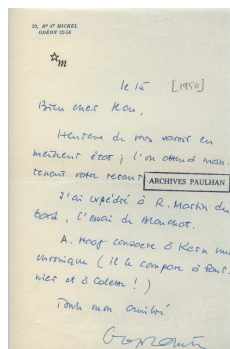 22, Bᵈ Sᵗ MICHEL
ODÉON 22-58
m
le 15 [1950]
Bien cher Jean,
Heureux de vous savoir en
meilleur état ; l'on attend main-
tenant votre retour
ARCHIVES PAULHAN
J'ai expédié à R. Martin du
Gard, l'essai de Blanchot.
A. Hoog consacre à Kern une
chronique ( il le compare à Four-
nier et à Colette ! )
Toute mon amitié